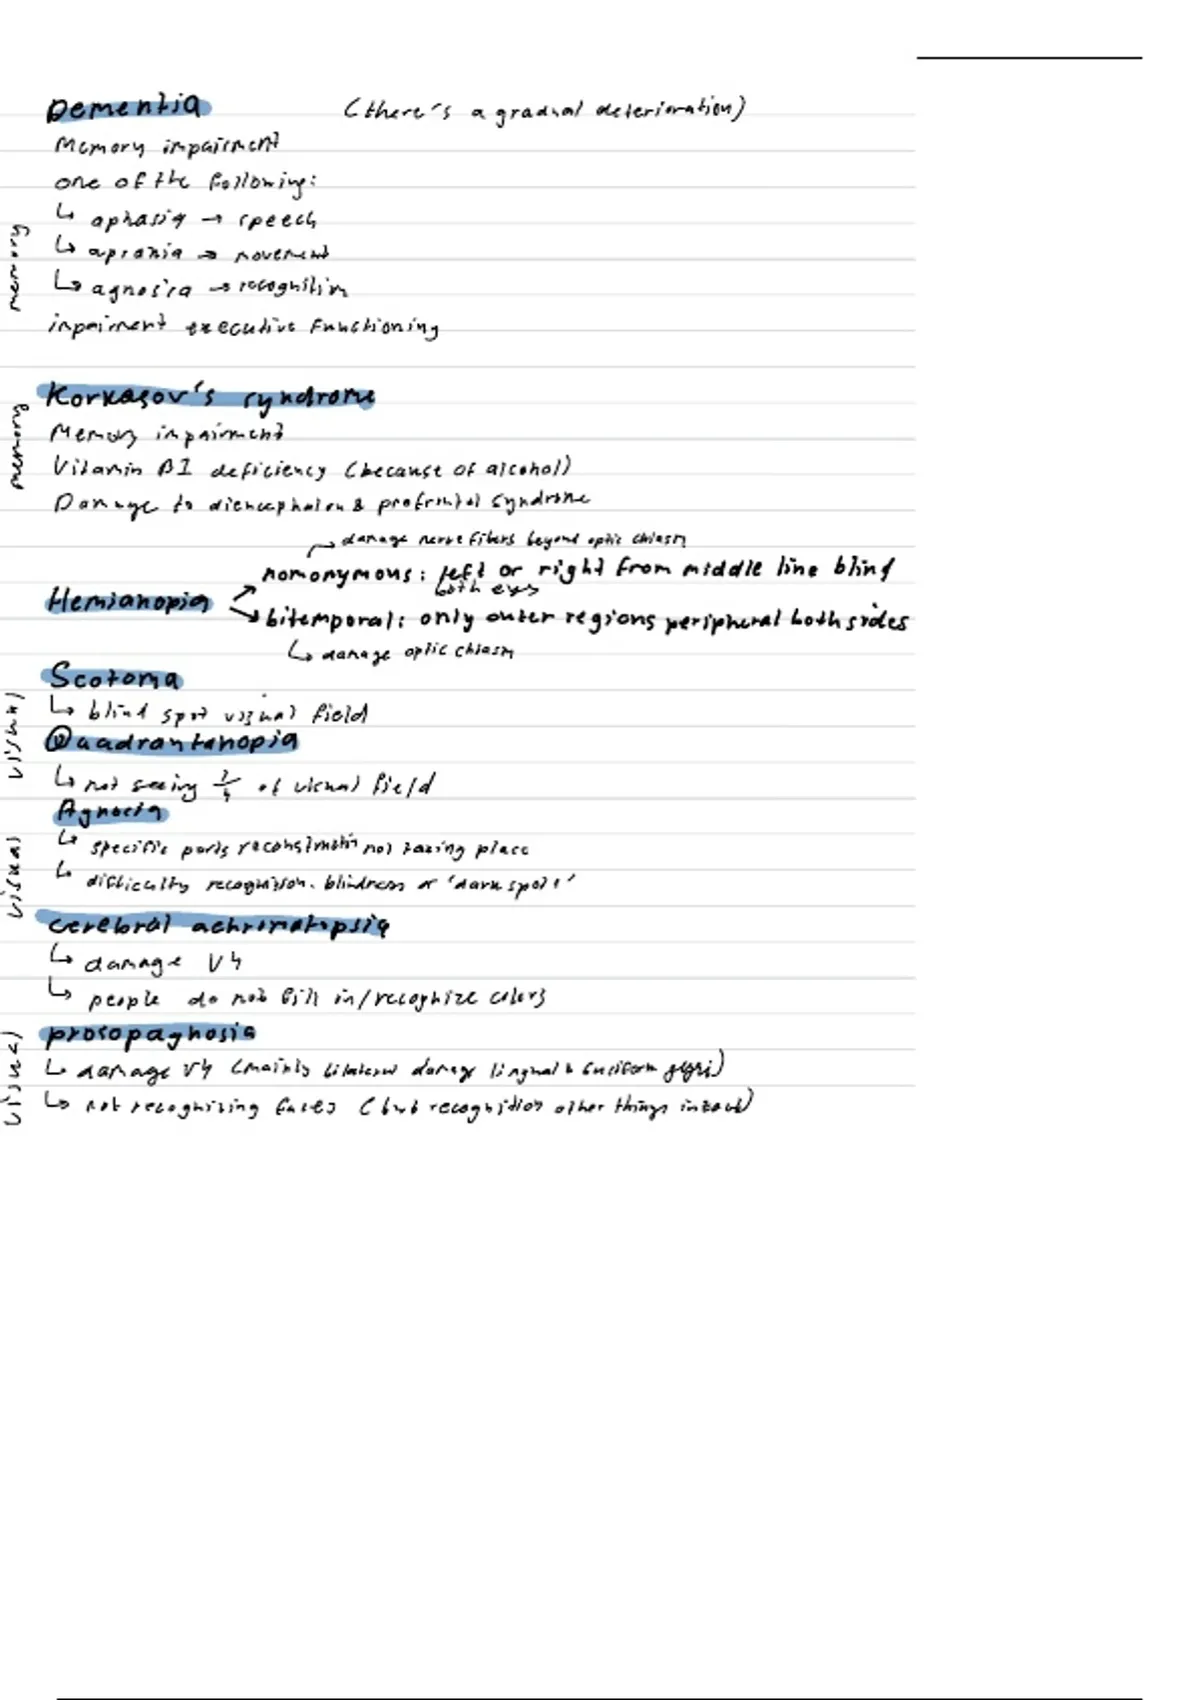 Dementia (there's a gradual deterioration)
Memory impairment
one of the following:
↳ aphasia → speech
↳ apraxia → movement
↳ agnosia → recognition
impairment executive functioning
memory
Korkasov's syndrome
Memory impairment
Vitamin B1 deficiency (because of alcohol)
Damage to diencephalon & prefrontal syndrome
memory
→ damage nerve fibers beyond optic chiasm
homonymous: left or right from middle line blind
both eyes
Hemianopia
bitemporal: only outer regions peripheral both sides
↳ damage optic chiasm
Scotoma
↳ blind spot visual field
visual
Quadrantanopia
↳ not seeing 1/4 of visual field
Agnosia
↳ specific parts reconstruction not taking place
↳ difficulty recognition. blindness or 'dark spots'
visual
cerebral achromatopsia
↳ damage V4
↳ people do not fill in/recognize colors
prosopagnosia
↳ damage V4 (mainly bilateral damage lingual & fusiform gyri)
↳ not recognizing faces (but recognition other things intact)
visual